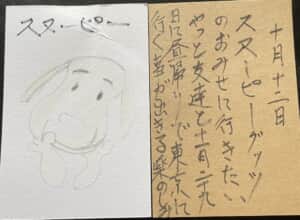 スヌーピー
十月十二日
スヌーピーグッツ
のおみせに行きたい
やっと友達と十一月二十九
日に昼帰りで東京に
行く事が出きる楽のしみ